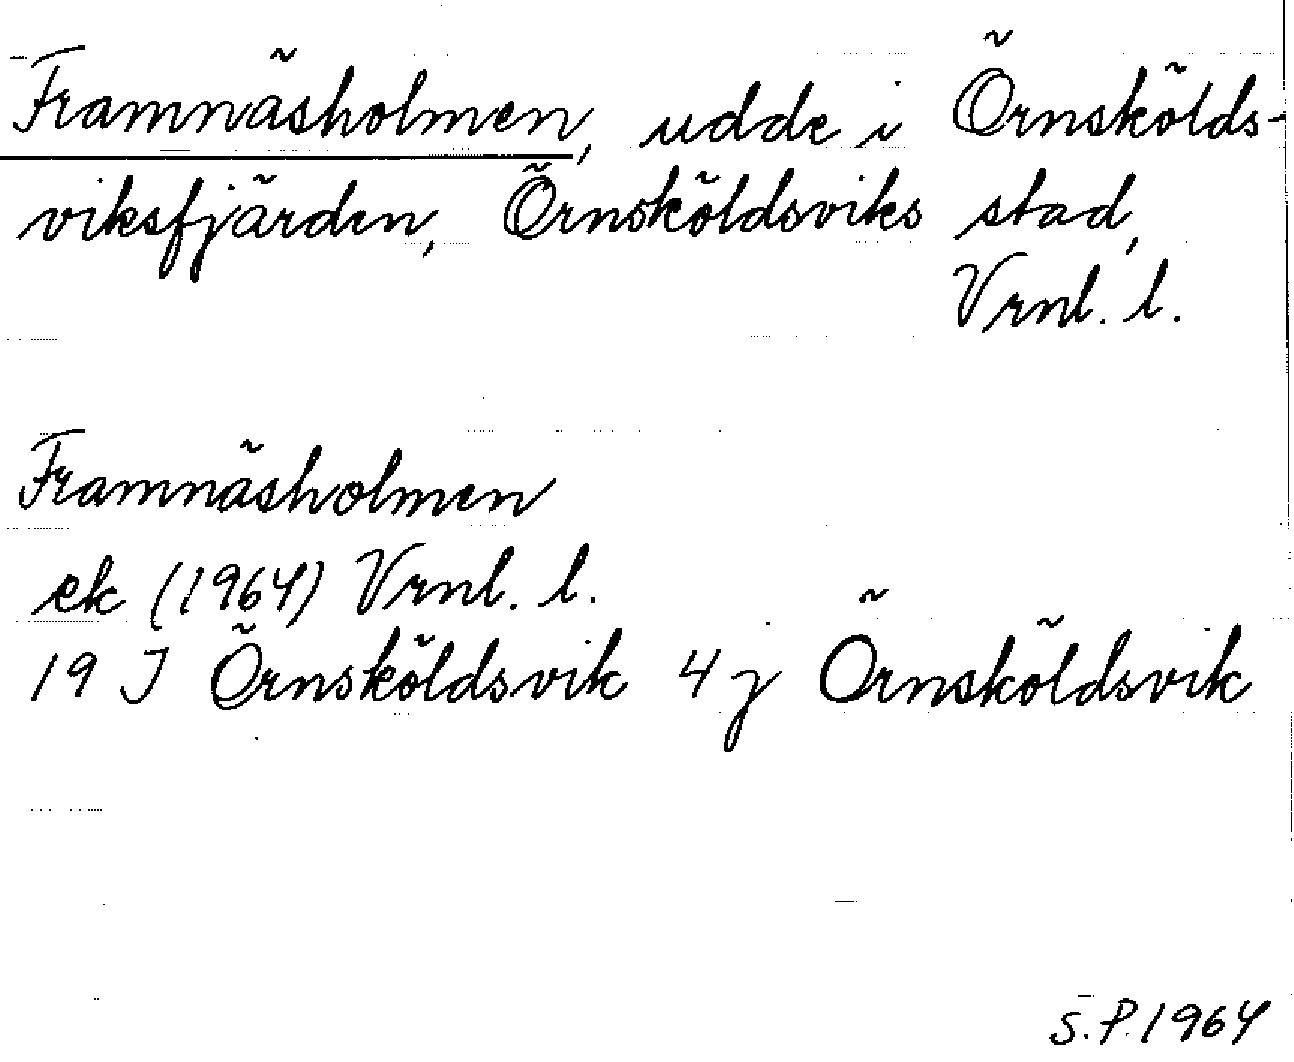 Framnäsholmen, udde i Örnskölds-
viksfjärden, Örnsköldsviks stad,
Vrnl. l.
Framnäsholmen
ek (1964) Vrnl. l.
19 J Örnsköldsvik 4 j Örnsköldsvik
S.P. 1964